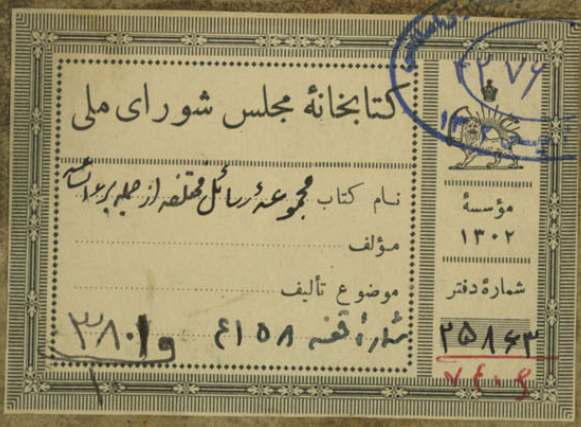 کتابخانهٔ مجلس شورای ملی
نام کتاب مجموعهٔ رسائل مختلفه از جمله برء الساعه
مؤلف
موضوع تألیف
شمارهٔ قفسه
۳۸۰۱
۴۲۷۶
مؤسسهٔ
۱۳۰۲
شمارهٔ دفتر
۲۵۸۶۳